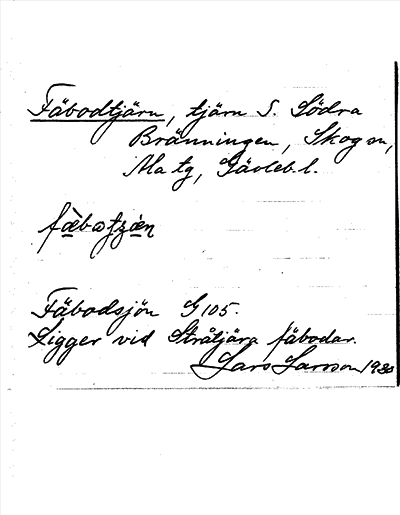 Fäbodtjärn, tjärn S. Södra
Bränningen, Skog sn,
Ma tg, Gävleb. l.
Fäbodsjön G 105.
Ligger vid Stråtjära fäbodar.
Lars Larsson